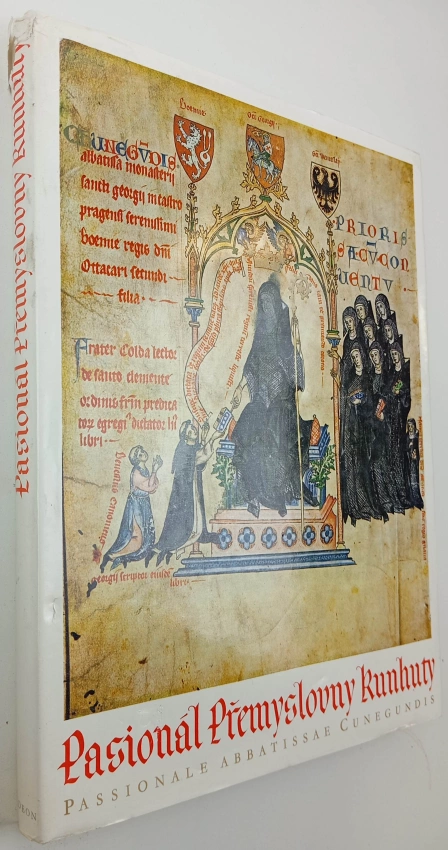 Pasionál Přemyslovny Kunhuty
Boemie
CUNEGŪDIS
abbatissa monasterii
sancti georgii in castro
pragensi serenissimi
boemie regis dni
Ottacari secundi
filia
PRIORIS
SA CŪ CON
VENTV
Frater Colda lector
de sancto clemente
ordinis frm predica
tor egregi dictator hi
libri
georgii scriptor eiusdē
libri
Pasionál Přemyslovny Kunhuty
PASSIONALE ABBATISSAE CUNEGUNDIS
ODEON